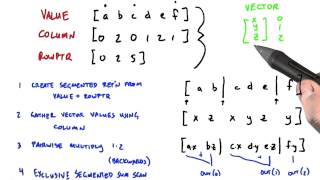 VALUE [ a b c d e f ]
COLUMN [ 0 2 0 1 2 1 ]
ROWPTR [ 0 2 5 ]
VECTOR
[ x ] 0
[ y ] 1
[ z ] 2
1 CREATE SEGMENTED REP'N FROM
VALUE + ROWPTR
2 GATHER VECTOR VALUES USING
COLUMN
3 PAIRWISE MULTIPLY 1·2
(BACKWARDS)
4 EXCLUSIVE SEGMENTED SUM SCAN
[ a b | c d e | f ]
[ x z x y z y ]
[ ax bz | cx dy ez | fy ]
OUT(0) OUT(1) OUT(2)